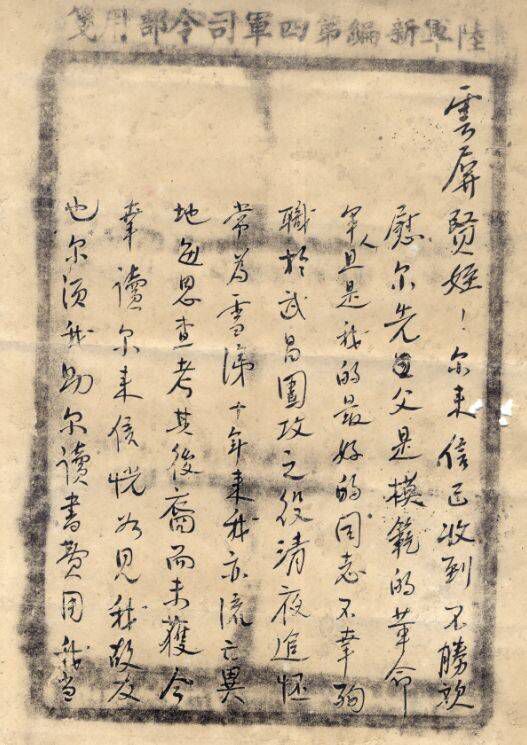 陸軍新編第四軍司令部用箋
雲屏贤姪！尔来信已收到不勝欣
慰尔先父是模範的革命
軍人且是我的最好的同志不幸殉
職於武昌圍攻之役清夜追怀
常為雪涕十年来我亦流亡異
地每思查考其後裔而未獲今
幸讀尔来信恍如見我故友
也尔須我助尔讀書費用我当